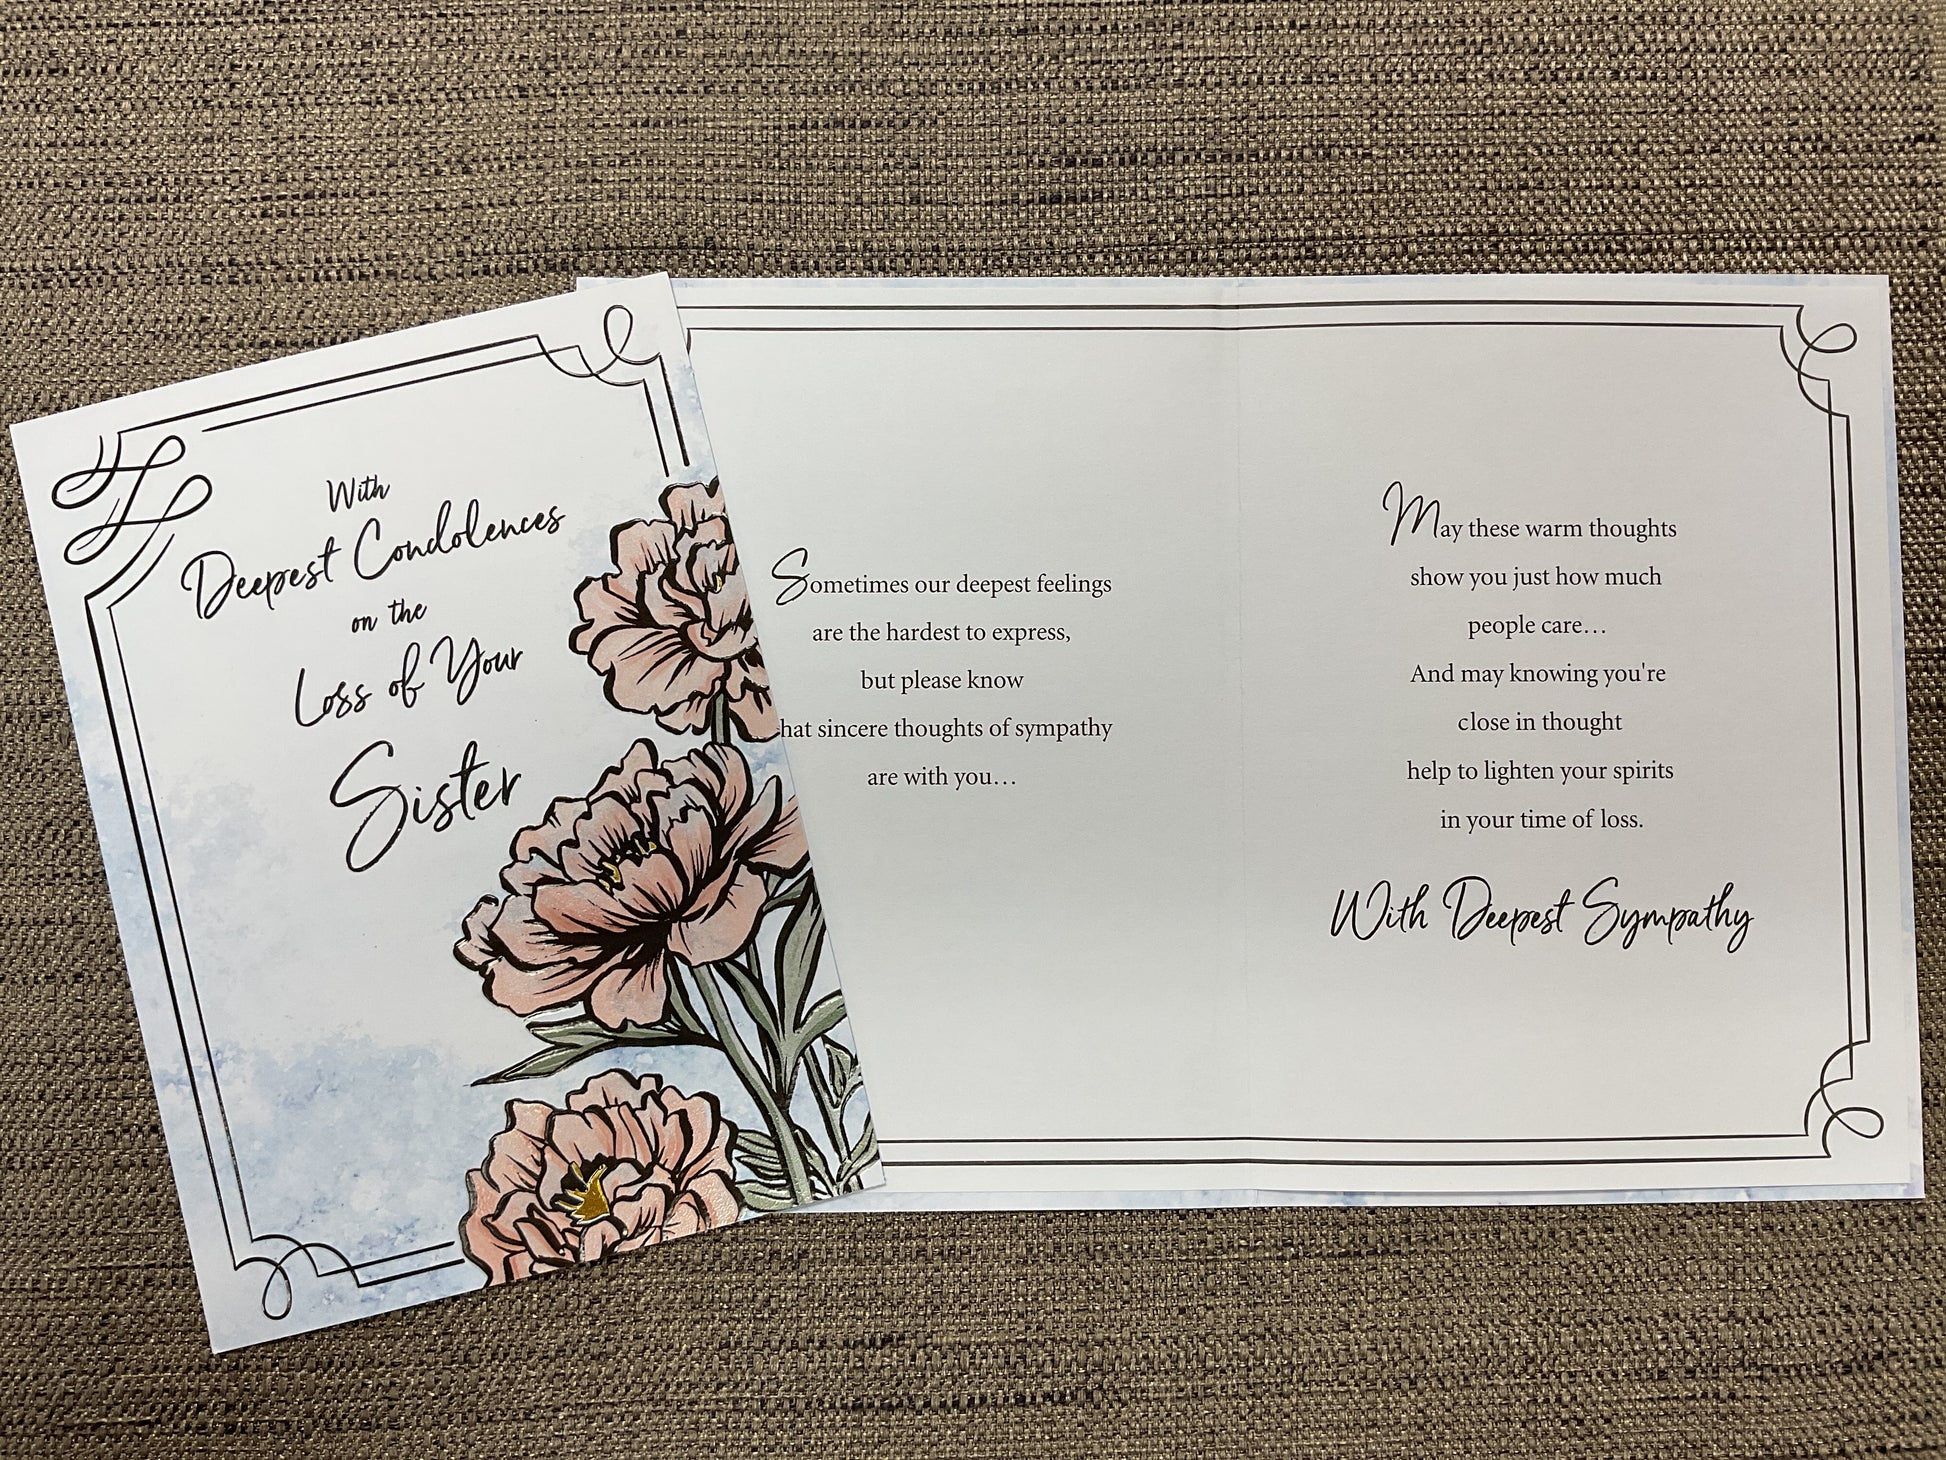 With
Deepest Condolences
on the
Loss of Your
Sister
Sometimes our deepest feelings
are the hardest to express,
but please know
hat sincere thoughts of sympathy
are with you…
May these warm thoughts
show you just how much
people care…
And may knowing you're
close in thought
help to lighten your spirits
in your time of loss.
With Deepest Sympathy